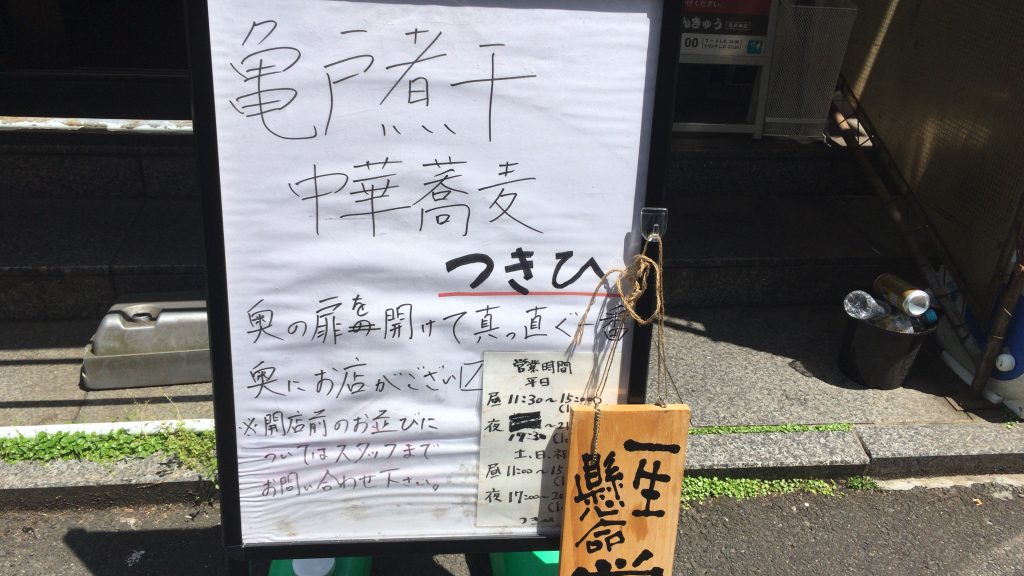 亀戸煮干
中華蕎麦
つきひ
奥の扉を開けて真っ直ぐ一番
奥にお店がござい
※開店前のお並びに
ついてはスタッフまで
お問い合わせ下さい。
営業時間
平日
昼 11:30〜15:00
夜 17:30 〜21
土、日、祝
昼 11:00〜15
夜 17:00〜20
つきひ
一生
懸命
んきゅう